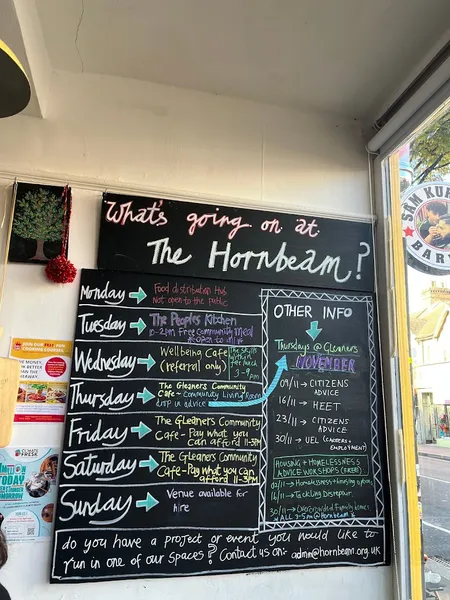 What's going on at
The Hornbeam?
Monday
Food distribution Hub
Not open to the public
Tuesday
The People's Kitchen
12-2pm Free Community Meal
open to all
Wednesday
Wellbeing Cafe
(referral only)
3-9
pm
Thursday
The Gleaners Community
Cafe - Community Living Room
drop in advice
Friday
The Gleaners Community
Cafe - Pay what you
can afford 11-3pm
Saturday
The Gleaners Community
Cafe - Pay what you can
afford 11-3pm
Sunday
Venue available for
hire
OTHER INFO
Thursdays @ Gleaners
NOVEMBER
09/11 → CITIZENS
ADVICE
16/11 → HEET
23/11 → CITIZENS
ADVICE
30/11 → UEL (CAREERS +
EMPLOYMENT)
HOUSING + HOMELESSNESS
ADVICE WORKSHOPS (FREE!)
02/11 → Homelessness + housing options
16/11 → Tackling Disrepair
30/11 → Overcrowded Family homes
ALL 3-5pm @ Hornbeam
do you have a project or event you would like to
run in one of our spaces? Contact us on: admin@hornbeam.org.uk
SAM
BAR